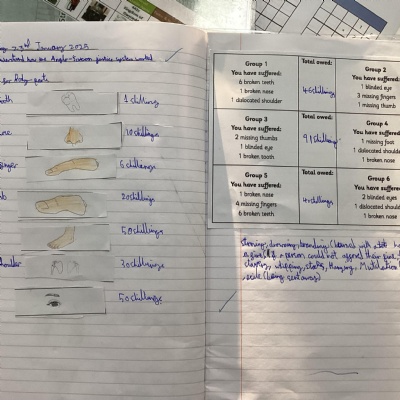 22nd January 2025
how the Anglo-Saxon justice system worked
for Body-parts
1 shilling
10 shillings
6 shillings
20 shillings
50 shillings
30 shillings
50 shillings
Group 1
You have suffered:
6 broken teeth
1 broken nose
1 dislocated shoulder
Total owed:
46 shillings
Group 2
You have suffered:
1 blinded eye
3 missing fingers
1 missing thumb
Group 3
You have suffered:
2 missing thumbs
1 blinded eye
1 broken tooth
Total owed:
91 shillings
Group 4
You have suffered:
1 missing foot
1 dislocated shoulder
1 broken nose
Group 5
You have suffered:
1 broken nose
4 missing fingers
6 broken teeth
Total owed:
40 shillings
Group 6
You have suffered:
2 blinded eyes
1 dislocated shoulder
1 broken nose
drowning, branding (burned with
if a person could not afford their fine,
whipping, stocks, Hanging, Mutilation
exile (being sent away)